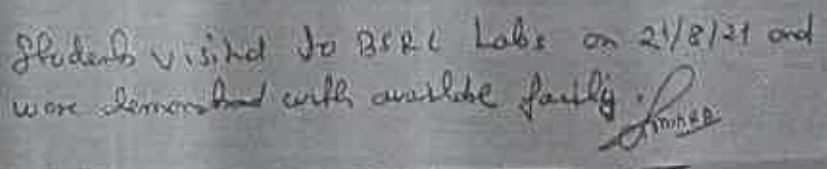 Students visited to BSRC Labs on 21/8/21 and
were demonstrated with available facility.